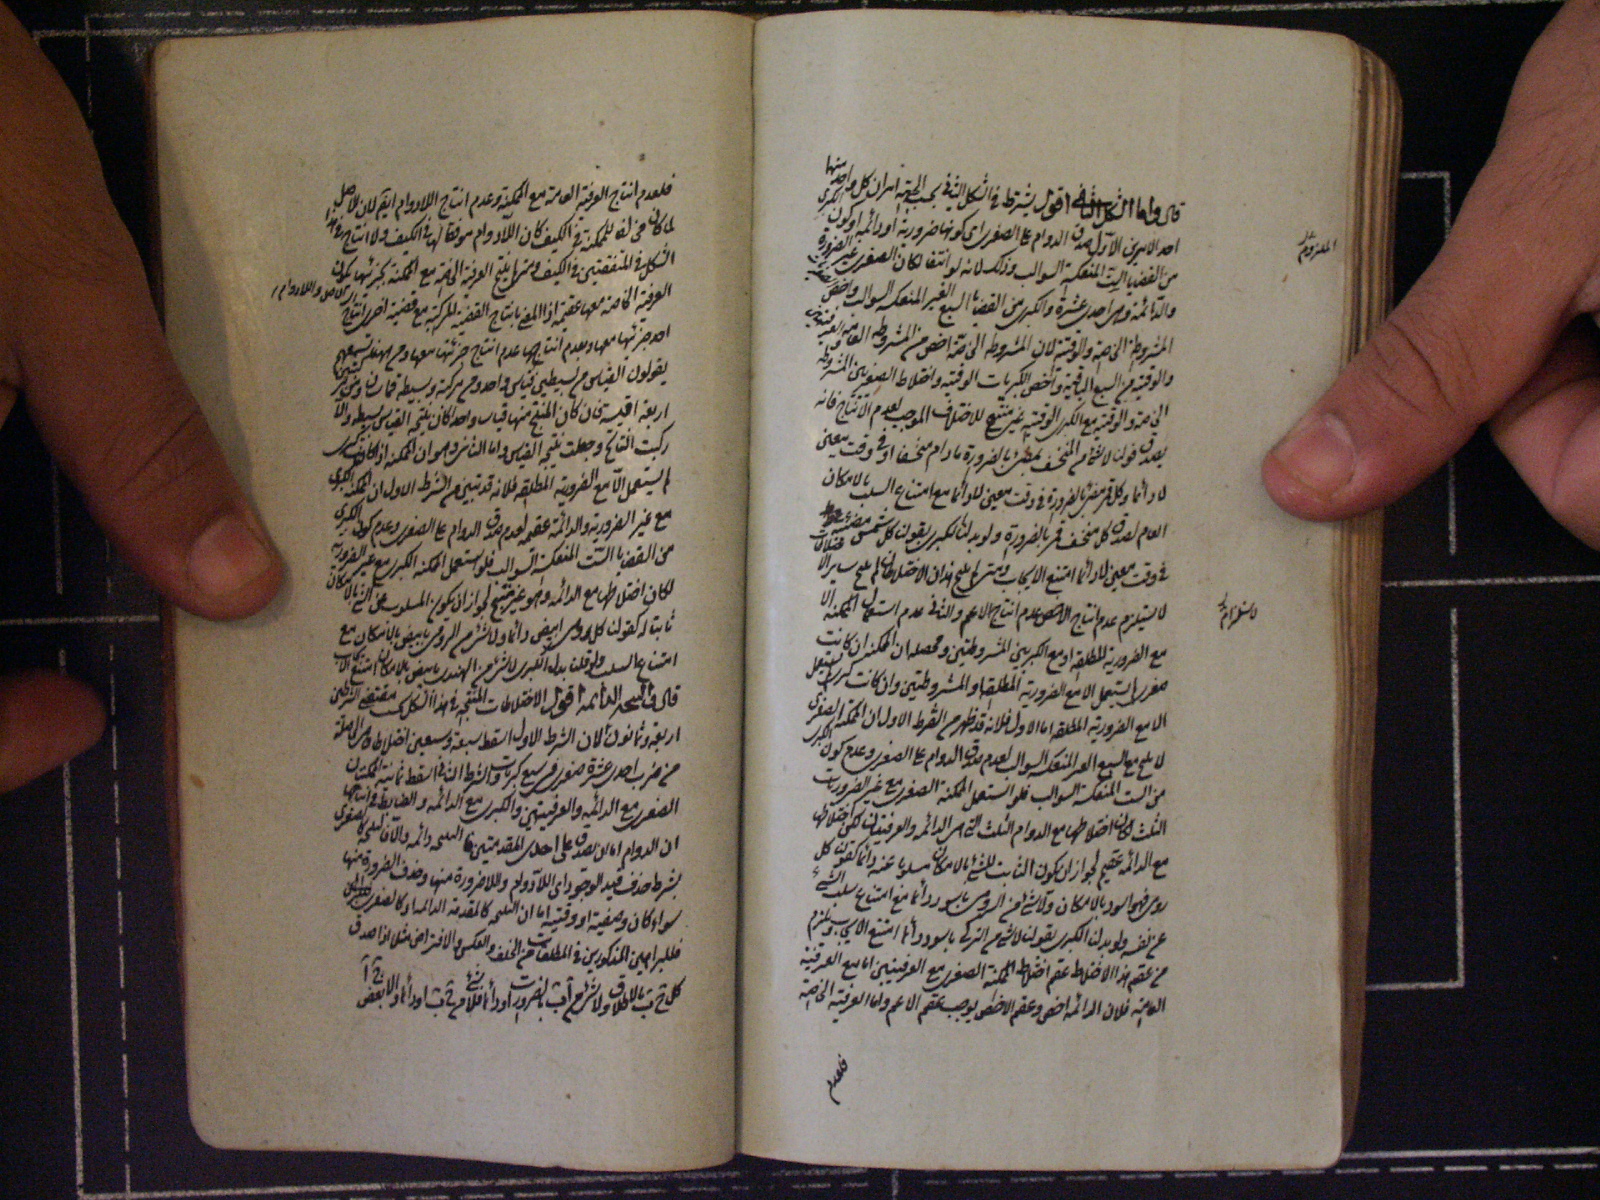 قال واما الشكل الثانى اقول يشترط فى الشكل الثانى بحسب الجهة امران كل واحد منها
احد الامرين الاول صدق الدوام على الصغرى اى كونها ضرورية او دائمة او كون الكبرى
من القضايا الست المنعكسة السوالب وذلك لانه لو انتفيا لكان الصغرى غير الضرورة
والدائمة وهى احدى عشرة والكبرى من القضايا السبع الغير المنعكسة السوالب واخص
المشروطة الخاصة والوقتية لان المشروطة الخاصة اخص من المشروطة العامة والعرفيتين
والوقتية من السبع الباقية واخص الكبريات الوقتية واختلاط الصغريين المشروطة
الخاصة والوقتية مع الكبرى الوقتية غير منتج للاختلاف الموجب لعدم الانتاج فانه
يصدق قولنا لا شئ من المنخسف بمضئ بالضرورة ما دام منخسفا او فى وقت معين
لا دائما وكل قمر مضئ بالضرورة فى وقت معين لا دائما مع امتناع السلب بالامكان
العام لصدق كل منخسف قمر بالضرورة ولو بدلنا الكبرى بقولنا كل شمس مضيئة
فى وقت معين لا دائما امتنع الايجاب ومتى لم ينتج هذان الاختلاطان لم ينتج ساير
لاستلزام عدم انتاج الاخص عدم انتاج الاعم والثانى عدم استعمال الممكنة الا
مع الضرورية المطلقة او مع الكبريين المشروطتين ومحصله ان الممكنة ان كانت
صغرى لم يستعمل الا مع الضرورية المطلقة او المشروطتين وان كانت كبرى لم يستعمل
الا مع الضرورية المطلقة اما الاول فلانه قد ظهر من الشرط الاول ان الممكنة الصغرى
لا تنتج مع السبع الغير المنعكسة السوالب لعدم صدق الدوام على الصغرى وعدم كون الكبرى
من الست المنعكسة السوالب فلو استعمل الممكنة الصغرى مع غير الضروريات
الثلث لكان اختلاطها مع الدوام الثلث التى هى الدائمة والعرفيتان لكن اختلاطها
مع الدائمة عقيم لجواز ان يكون الثابت للشئ بالامكان مسلوبا عنه دائما كقولنا كل
رومى فهو اسود بالامكان ولا شئ من الرومى باسود دائما مع امتناع سلب الشئ
عن نفسه ولو بدلنا الكبرى بقولنا لا شئ من التركى باسود دائما امتنع الايجاب ويلزم
من عقم هذا الاختلاط عقم اختلاط الممكنة الصغرى مع العرفيتين اما مع العرفية
العامة فلان الدائمة اخص وعقم الاخص يوجب عقم الاعم واما العرفية الخاصة
فلعدم
لاستلزام
فلعدم انتاج العرفية العامة مع الممكنة وعدم انتاج اللادوام ايضا لان الاصل
لما كان مخالفا للممكنة فى الكيف كان اللادوام موافقا لها فى الكيف ولا انتاج فى هذا
الشكل فى المتفقتين فى الكيف ومتى لم ينتج العرفية الخاصة مع الممكنة بجزئيها يكون
الاصل واللادوام
العرفية الخاصة معها عقيمة اذ المعنى بانتاج القضية المركبة مع قضية اخرى انتاج
احد جزئيها معها وبعدم انتاجها عدم انتاج جزئيها معها ومن ههنا تسمعهم
يقولون القياس من بسيطتين قياس واحد ومن مركبة وبسيطة قياسان ومن مركبتين
اربعة اقيسة فان كان المنتج منها قياسا واحدا كان نتيجة القياس بسيطة والا
ركبت النتائج وجعلت نتيجة القياس واما الثانى وهو ان الممكنة اذا كانت كبرى
لم يستعمل الا مع الضرورية المطلقة فلانه قد تبين من الشرط الاول ان الممكنة الكبرى
مع غير الضرورية والدائمة عقيمة لعدم صدق الدوام على الصغرى وعدم كون الكبرى
من القضايا الست المنعكسة السوالب فلو استعمل الممكنة الكبرى مع غير الضرورية
لكان اختلاطها مع الدائمة وهو غير منتج لجواز ان يكون المسلوب عن الشئ بالامكان
ثابتا له كقولنا كل رومى ابيض دائما ولا شئ من الرومى بابيض بالامكان مع
امتناع السلب ولو قلنا بدل الكبرى لا شئ من الهندى بابيض بالامكان امتنع الايجاب
قال والنتيجة الدائمة اقول الاختلاطات المنتجة فى هذا الشكل بحسب مقتضى الشرطين
اربعة وثمانون لان الشرط الاول اسقط سبعة وسبعين اختلاطا وهى الحاصلة
من ضرب احدى عشرة صغرى فى سبع كبريات والشرط الثانى اسقط ثمانية الممكنتان
الصغرى مع الدائمة والعرفيتين والكبرى مع الدائمة والضابط فى انتاجها
ان الدوام اما ان يصدق على احدى المقدمتين فالنتيجة دائمة والا فالنتيجة كالصغرى
بشرط حذف قيد الوجود اى اللادوام واللاضرورة منها وحذف الضرورة منها
سواء كان وصفية او وقتية اما ان النتيجة كالمقدمة الدائمة او كالصغرى
فللبراهين المذكورين فى المطلقات من الخلف والعكس والافتراض مثلا اذا صدق
كل ج ب بالاطلاق ولا شئ من آ ب بالضرورة او دائما فلا شئ من ج آ